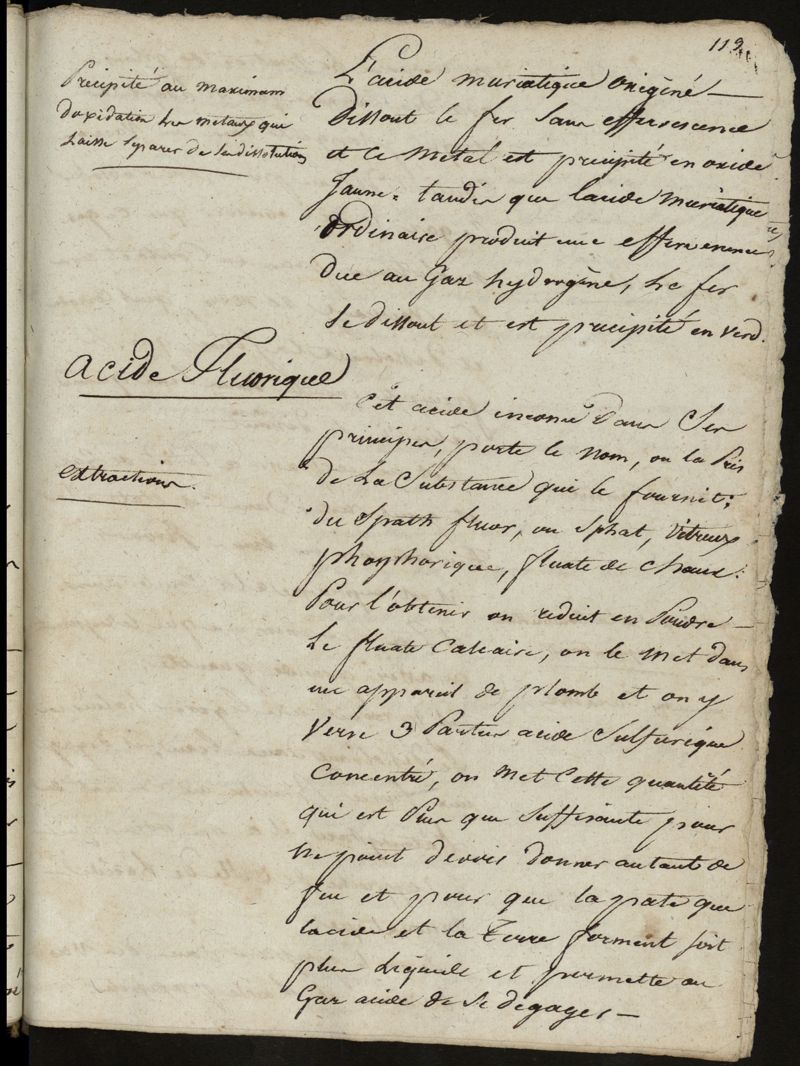 119
Précipité au maximum
doxidation les metaux qui
laisse separer de ses dissolutions
L'acide muriatique oxigèné
dissout le fer sans effersescence
et ce metal est precipité en oxide
Jaune. tandis que lacide muriatique
ordinaire produit une effervessence
due au Gaz hydrogène, le fer
se dissout et est precipité en verd.
acide Fluorique
Cet acide inconnu dans ses
principes, porte le nom, on la Pris
extraction.
de la Substance qui le fournit:
du Spath fluor, ou Sphat, Vitreux
phosphorique, fluate de chaux.
Pour l'obtenir on reduit en Poudre
le fluate Calcaire, on le met dans
une appareil de plomb et on y
Verse 3 Parties acide Sulfurique
Concentré, on met Cette quantité
qui est Plus que Suffisante pour
ne point devoir donner autant de
feu et pour que la pate que
lacide et la Terre forment soit
plus Liquide et permette au
Gaz acide de se degager